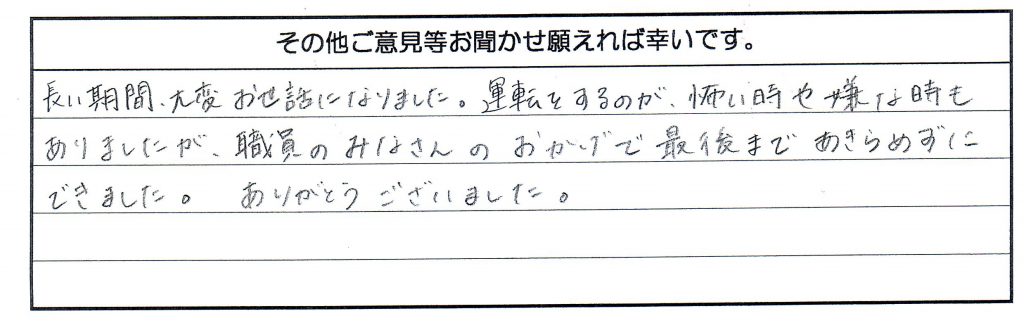 その他ご意見等お聞かせ願えれば幸いです。
長い期間、大変お世話になりました。運転をするのが、怖い時や嫌な時も
ありましたが、職員のみなさんのおかげで最後まであきらめずに
できました。 ありがとうございました。